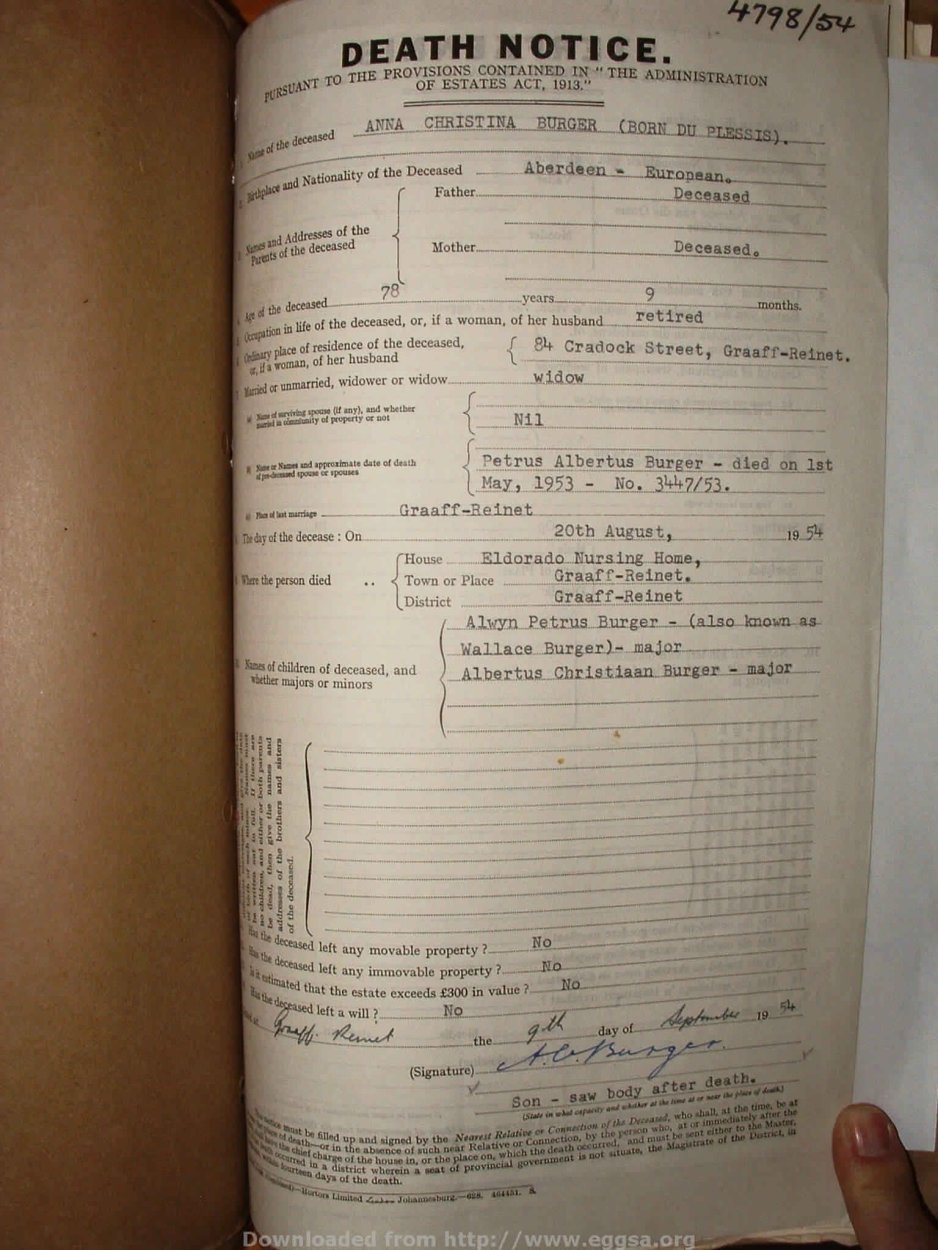 4798/54
DEATH NOTICE.
PURSUANT TO THE PROVISIONS CONTAINED IN "THE ADMINISTRATION
OF ESTATES ACT, 1913."
Name of the deceased ANNA CHRISTINA BURGER (BORN DU PLESSIS).
Birthplace and Nationality of the Deceased Aberdeen - European.
Names and Addresses of the
Parents of the deceased
Father Deceased
Mother Deceased.
Age of the deceased 78 years 9 months.
Occupation in life of the deceased, or, if a woman, of her husband retired
Ordinary place of residence of the deceased,
or, if a woman, of her husband
84 Cradock Street, Graaff-Reinet.
Married or unmarried, widower or widow widow
Name of surviving spouse (if any), and whether
married in community of property or not
Nil
Name or Names and approximate date of death
of pre-deceased spouse or spouses
Petrus Albertus Burger - died on 1st
May, 1953 - No. 3447/53.
Place of last marriage Graaff-Reinet
The day of the decease : On 20th August, 19 54
Where the person died ..
House Eldorado Nursing Home,
Town or Place Graaff-Reinet.
District Graaff-Reinet
Names of children of deceased, and
whether majors or minors
Alwyn Petrus Burger - (also known as
Wallace Burger)- major
Albertus Christiaan Burger - major
be written out in full. If there are
no children, and either or both parents
be dead, then give the names and
addresses of the brothers and sisters
of the deceased.
Has the deceased left any movable property ? No
Has the deceased left any immovable property ? No
Is it estimated that the estate exceeds £300 in value ? No
Has the deceased left a will ? No
Graaff-Reinet the 9th day of September 19 54
(Signature) A.C. Burger.
Son - saw body after death.
(State in what capacity and whether at the time at or near the place of death)
must be filled up and signed by the Nearest Relative or Connection of the Deceased, who shall, at the time, be at
of death—or in the absence of such near Relative or Connection, by the person who, at or immediately after the
chief charge of the house in, or the place on, which the death occurred, and must be sent either to the Master,
occurred in a district wherein a seat of provincial government is not situate, the Magistrate of the District, in
fourteen days of the death.
Hortors Limited Johannesburg.—628. 464451. S.
Downloaded from http://www.eggsa.org